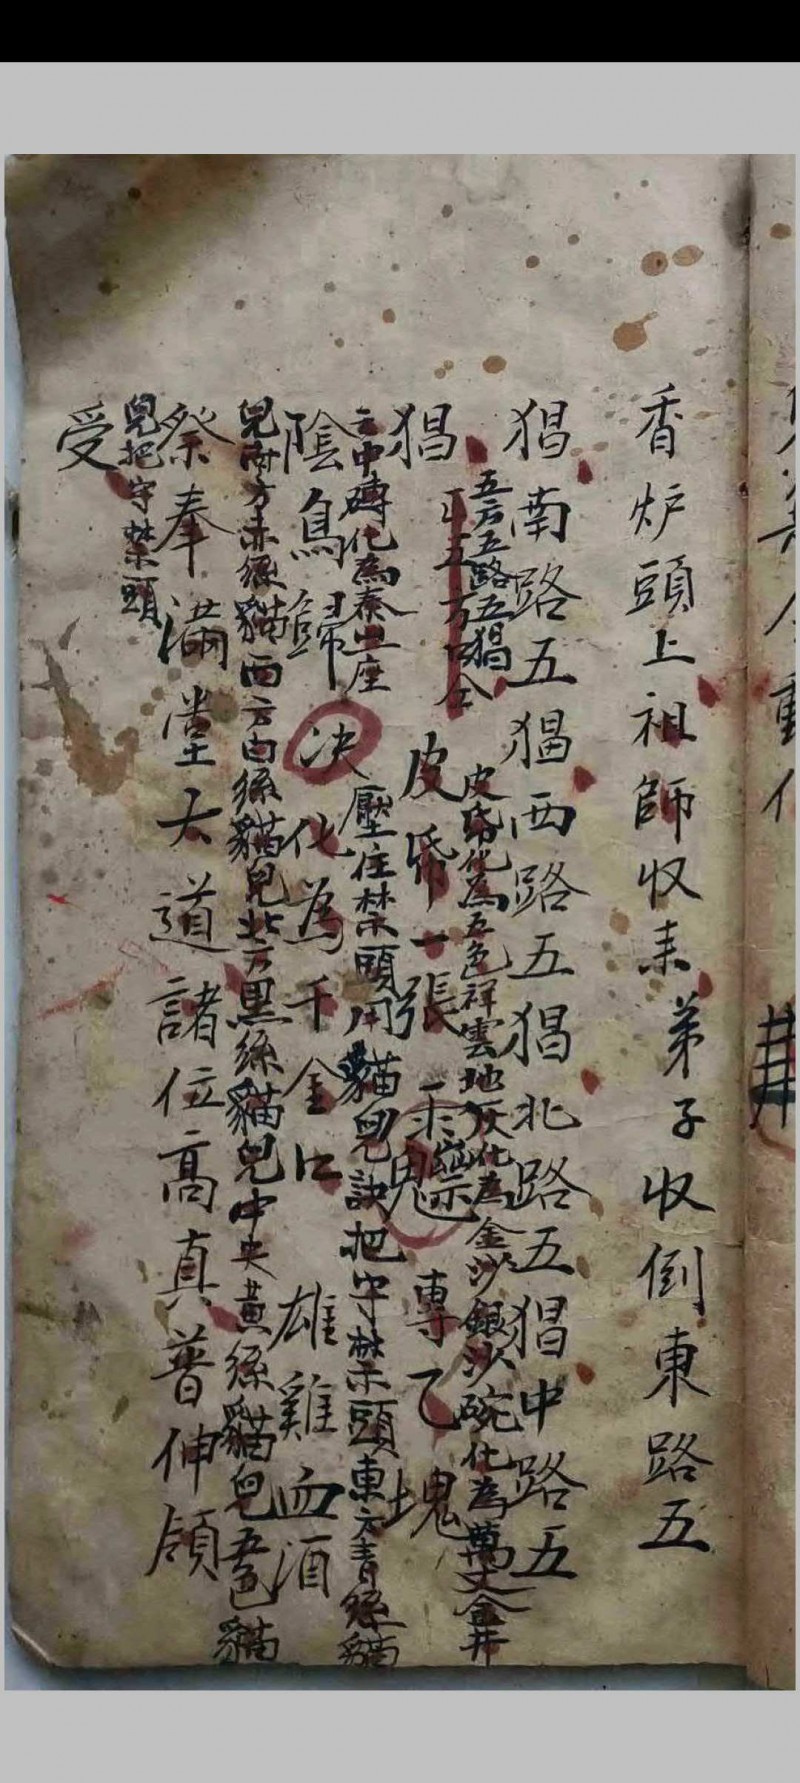 香炉頭上祖師収来弟子収倒東路五
猖南路五猖西路五猖北路五猖中路五
五方五路五猖
皮帋化為五色祥雲地灰化為金沙銀沙碗化為萬丈金井
猖
正五方口仝
皮帋一張
専乙塊
云中磚化為泰山一座
壓住禁頭用貓兒訣把守禁頭東方青絲貓
陰鳥歸决化為千金口 雄雞血酒
兒南方赤絲貓兒西方白絲貓兒北方黑絲貓兒中央黃絲貓兒五色貓
祭奉滿堂大道諸位高真普伸領
兒把守禁頭
受